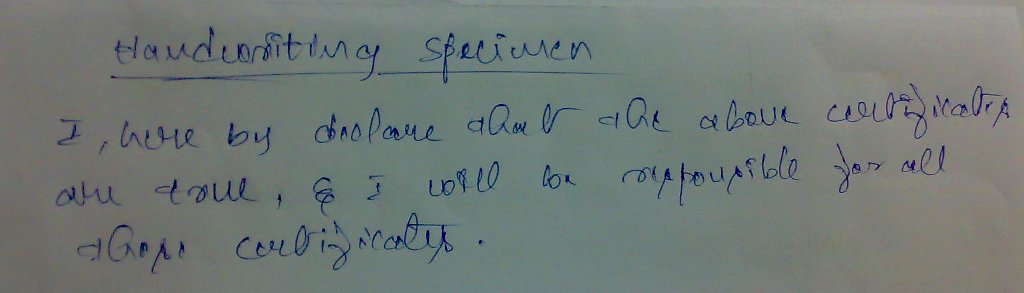 Handwriting specimen
I, here by declare that the above certificates
are true, & I will be responsible for all
those certificates.